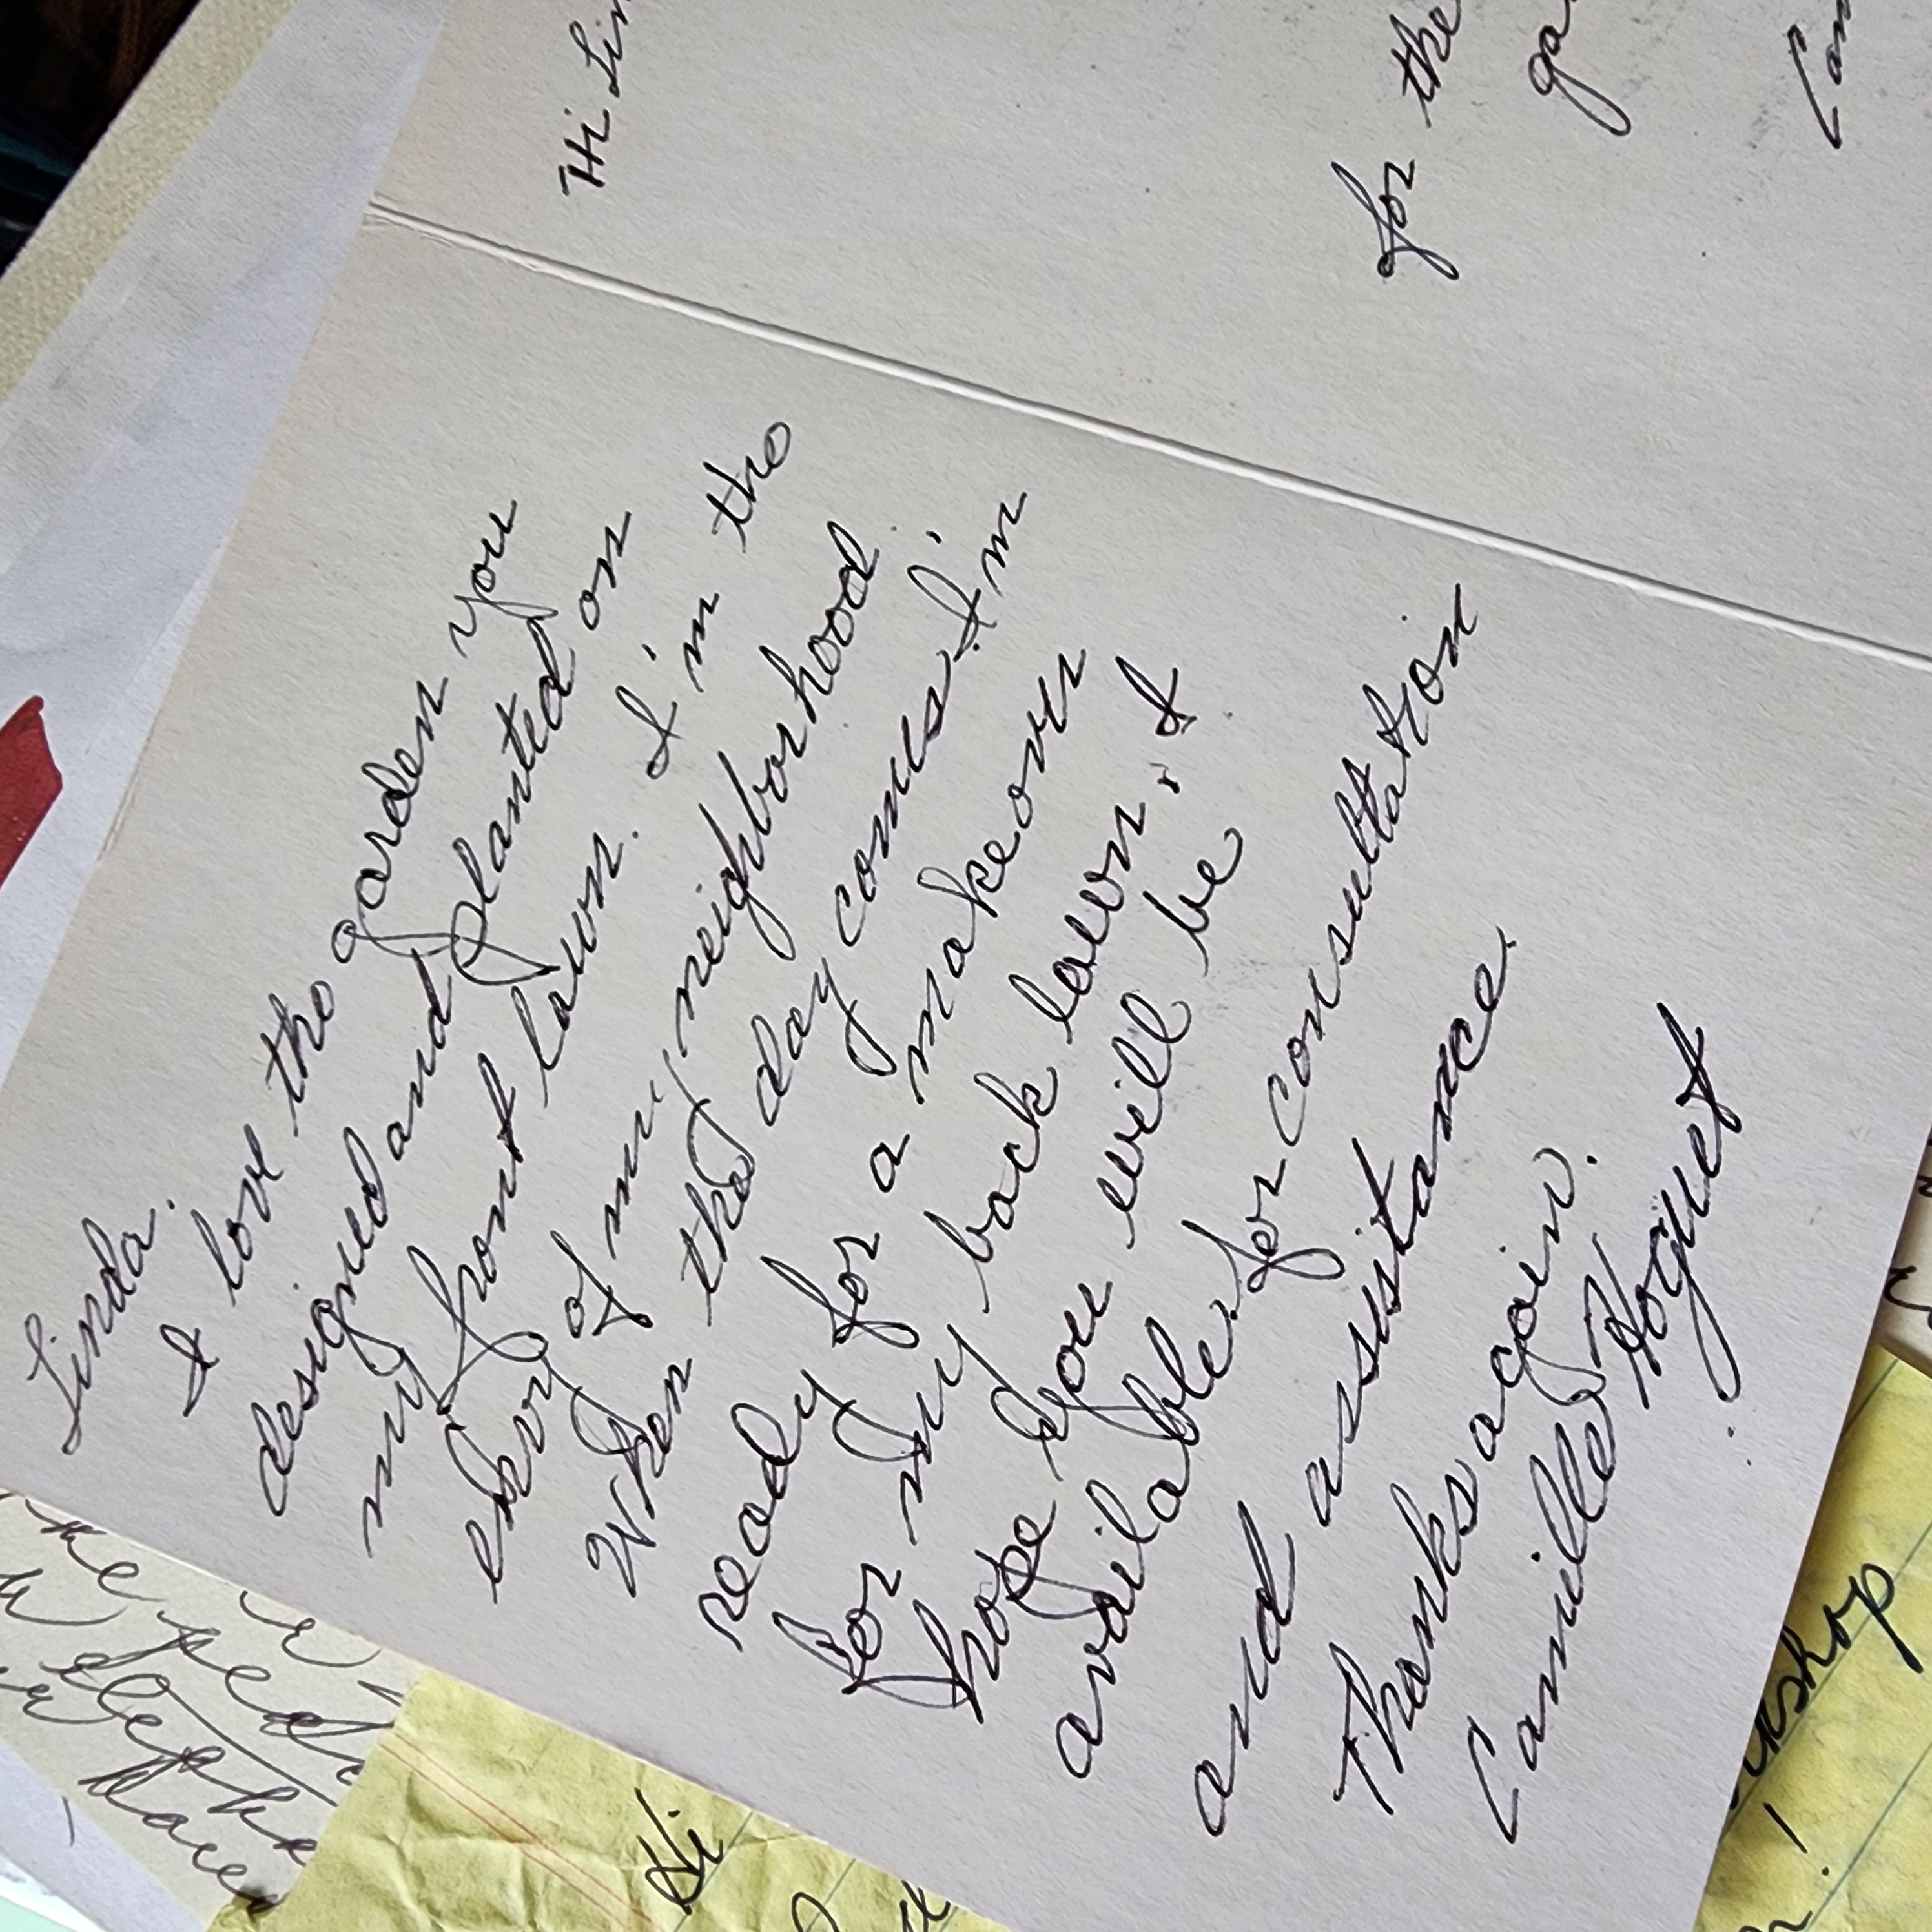 Linda.
I love the garden you
designed and planted on
my front lawn. I'm the
envy of my neighborhood.
When the day comes I'm
ready for a makeover
for my back lawn, I
hope you will be
available for consultation
and assistance.
Thanks again.
Camille Hoguet
Hi Lin
for the
ga
Cam
Hi
kshop
!